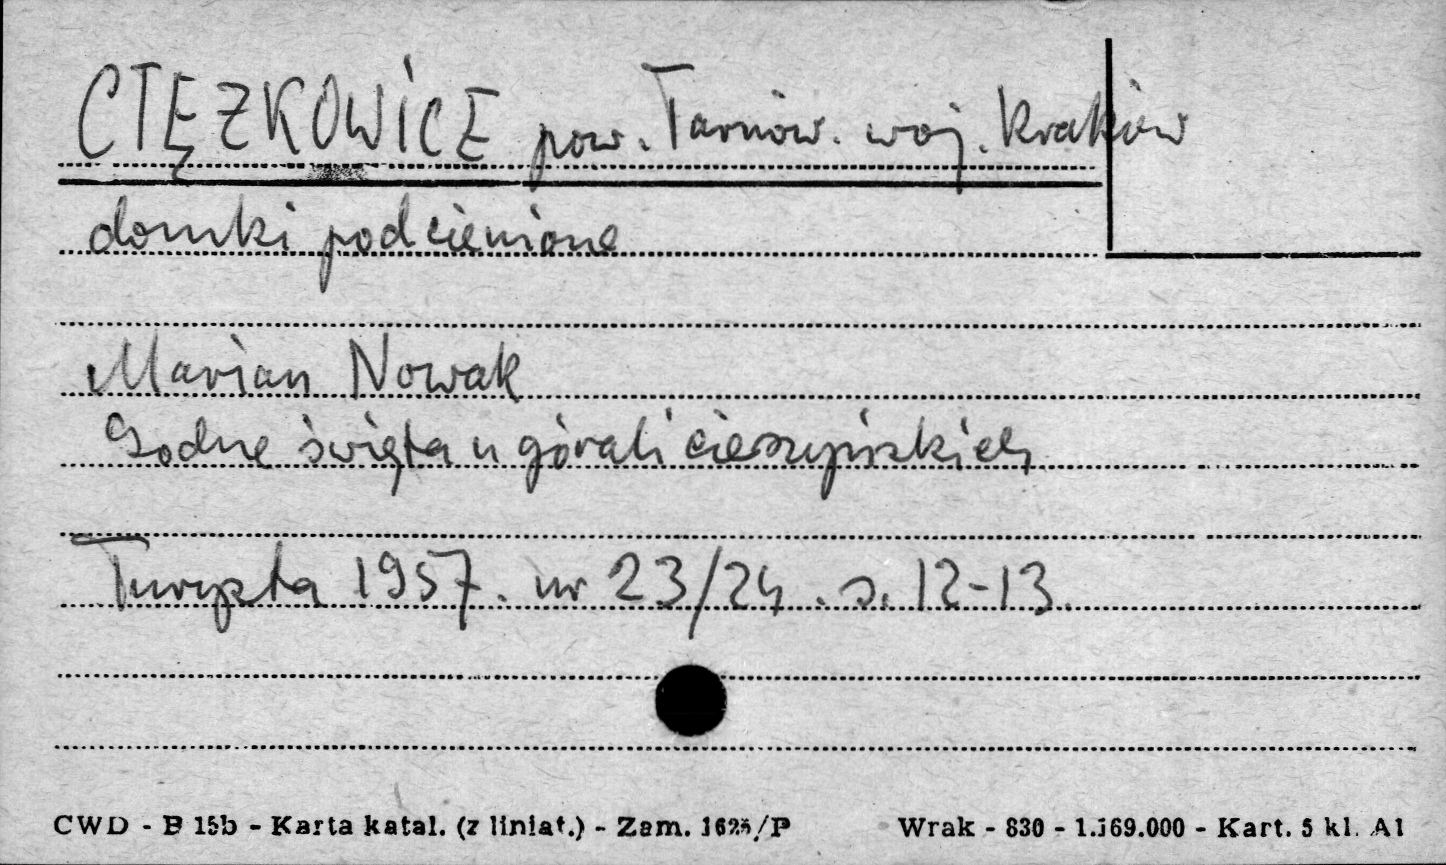 CIĘZKOWICE pow. Tarnów. woj. Kraków
domki podcienione
Marian Nowak
Godne święta u górali cieszyńskich
Turysta 1957. nr 23/24. s. 12-13.
CWD - B 15b - Karta katal. (z liniat.) - Zam. 1625/P Wrak - 830 - 1.169.000 - Kart. 5 kl. A1